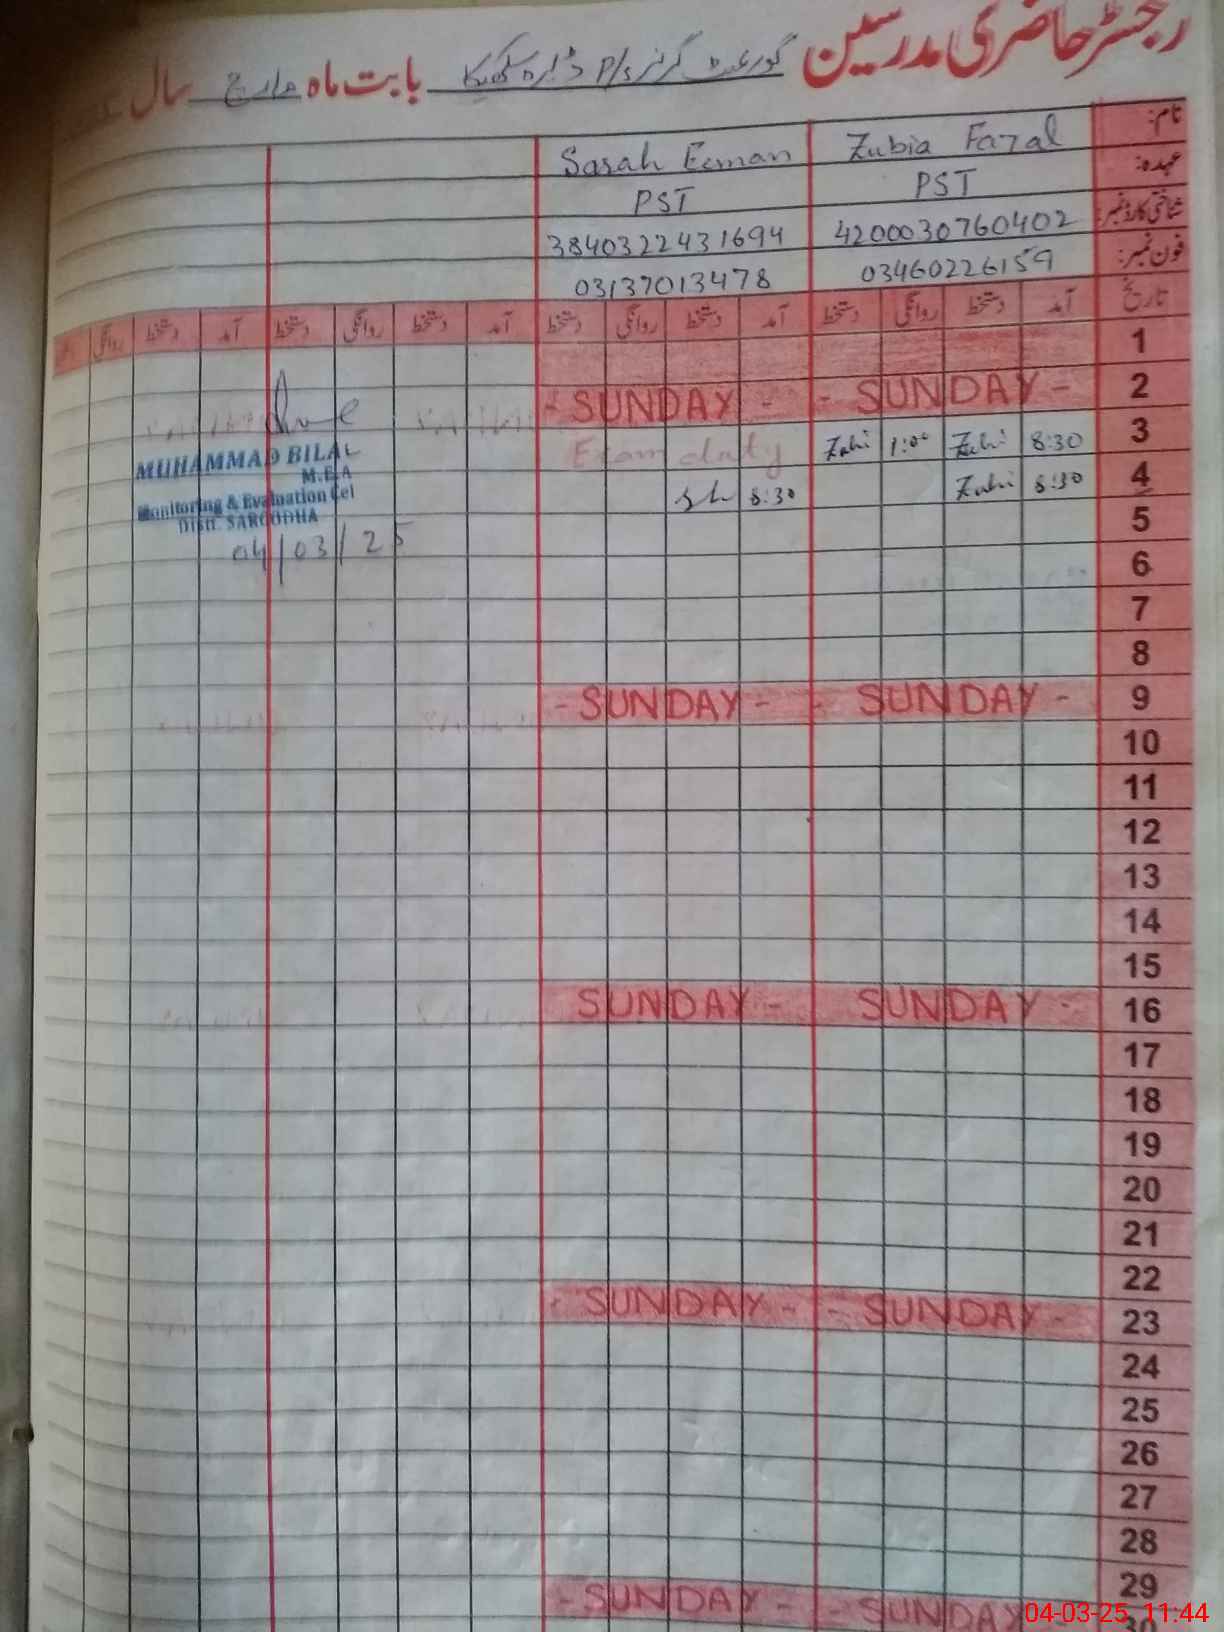 رجسٹر حاضری مدرسین گورنمنٹ گرلز P/S ڈیرہ بابت ماہ مارچ سال
نام: Zubia Fazal Sarah Eeman
عہدہ: PST PST
شناختی کارڈ نمبر: 4200030760402 3840322431694
فون نمبر: 03460226159 03137013478
تاریخ آمد دستخط روانگی دستخط آمد دستخط روانگی دستخط آمد دستخط روانگی دستخط آمد دستخط روانگی
1
2 - SUNDAY - - SUNDAY -
3 8:30 Zubi 1:00 Zubi Exam duty
4 8:30 Zubi 8:30
5
6
7
8
9 - SUNDAY - - SUNDAY -
10
11
12
13
14
15
16 SUNDAY - SUNDAY -
17
18
19
20
21
22
23 - SUNDAY - - SUNDAY -
24
25
26
27
28
29
30 - SUNDAY - - SUNDAY
MUHAMMAD BILAL
M.E.A
Monitoring & Evaluation Cel
Distt. SARGODHA
04/03/25
04-03-25 11:44